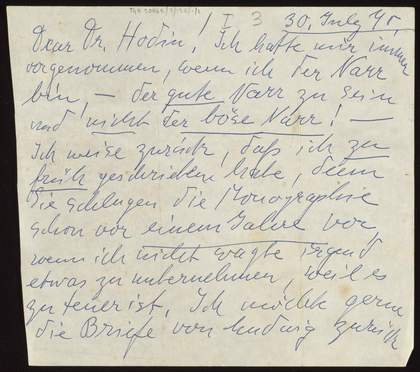 I 3 30. July 75,
Dear Dr. Hodin! Ich hatte mir immer
vorgenommen, wenn ich der Narr
bin, – der gute Narr zu sein
und nicht der böse Narr! –
Ich weise zurück, daß ich zu
früh geschrieben habe, denn
Sie schlugen die Monographie
schon vor einem Jahre vor,
wenn ich nicht wagte irgend
etwas zu unternehmen, weil es
zu teuer ist. Ich möchte gern
die Briefe von Ludwig zurück